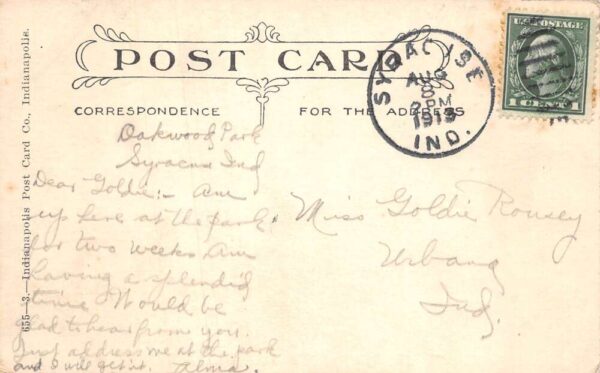 POST CARD
CORRESPONDENCE
FOR THE ADDRESS
SYRACUSE
AUG
8
PM
IND.
U.S. POSTAGE
1 CENT 1
655—3.—Indianapolis Post Card Co., Indianapolis.
Oakwood Park
Syracuse Ind
Dear Goldie:- Am
up here at the park
for two weeks Am
having a splendid
time Would be
glad to hear from you.
Just address me at the park
and I will get it. Alma.
Miss Goldie Rousey
Urbana
Ind.